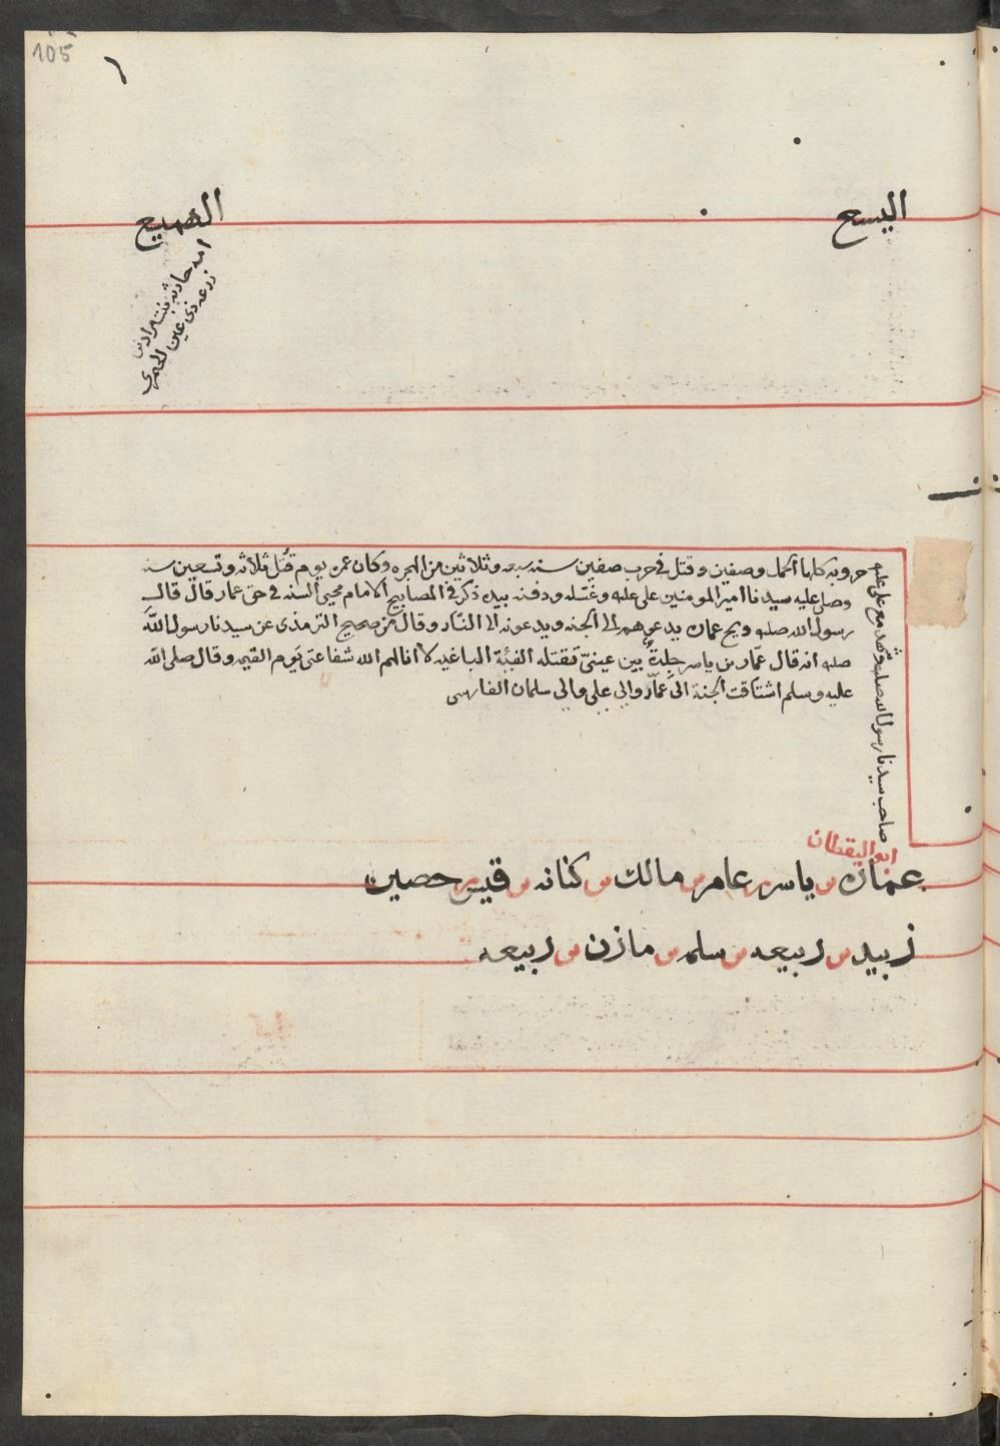 105
اليسع
الصميع
امه حادثه بنت مراد بن
زرعه ذى عين الحميرى
صاحب سيدنا رسول الله صلعم وشهد مع على عليه
حروبه كلها الجمل وصفين وقتل فى حرب صفين سنه سبعه وثلاثين من الهجره وكان عمره يوم قتل ثلاثه وتسعين سنه
وصلى عليه سيدنا امير المومنين على عليه وغسله ودفنه بيده ذكر فى المصابيح الامام محيى السنه فى حق عمار قال قال
رسول الله صلعم ويح عمار يدعوهم الى الجنه ويدعونه الى النار وقال من صحيح الترمذى عن سيدنا رسول الله
صلعم انه قال عمار بن ياسر جلدة بين عينىّ تقتله الفئة الباغيه لا انالهم الله شفاعتى يوم القيمه وقال صلى الله
عليه وسلم اشتاقت الجنة الى عمار والى على والى سلمان الفارسى
ابو اليقظان
عمار بن ياسر بن عامر بن مالك بن كنانه بن قيس بن حصين
زبيد بن ربيعه بن سلمه بن مازن بن ربيعه